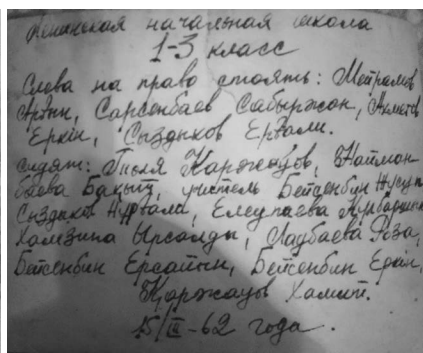 Ленинская начальная школа
1-3 класс
Слева на право стоять: Мейрамов
Ардын, Сарсенбаев Сабыржон, Ахметов
Еркін, Сыздыков Ердали.
сидят: Гюля Каржаубов, Найман
баева Бакыш, учитель Бейсенбин Жусуп
Сыздыков Нұрғали, Елеупаева Курбаджан
Хамзина Ырсалды, Лаубаева Роза,
Бейсенбин Ерсайын, Бейсенбин Еркін,
Қоржауов Хамит.
15/III-62 года.